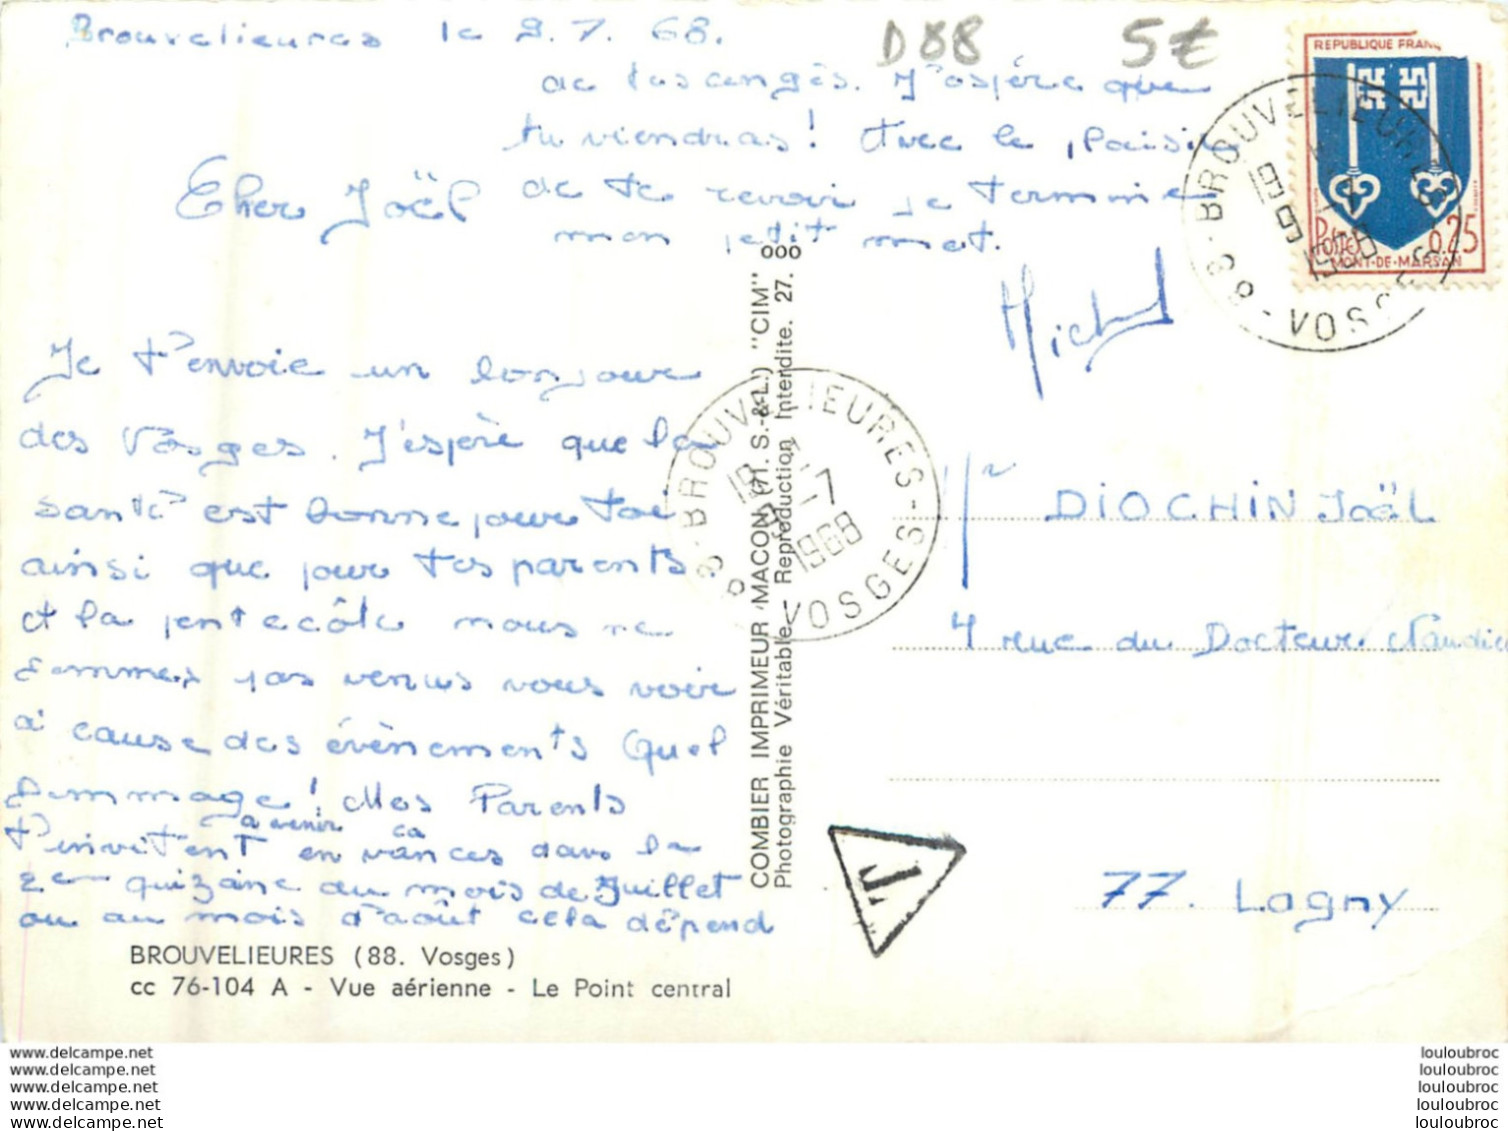 Brouvelieures le 9.7.68.
D88
5€
Cher Joël
Je t'envoie un bonjour
des Vosges. J'espère que la
santé est bonne pour toi
ainsi que pour tes parents
et la pentecôte nous ne
sommes pas venus vous voir
à cause des évènements Quel
dommage! Mes Parents
a venir ca
t'invitent en vances dans la
2eme quizaine du mois de Juillet
ou au mois d'août cela dépend
de tes congés. J'espére que
tu viendras! Avec le plaisir
de te revoir je termine
mon petit mot.
Michel
REPUBLIQUE FRANÇ
Postes
0.25
MONT-DE-MARSAN
88 - BROUVELIEURES - VOSGES
88 - BROUVELIEURES - VOSGES
1968
Mr DIOCHIN Joël
4 rue du Docteur Naudier
77. Lagny
T
COMBIER IMPRIMEUR MACON (71. S.-&-L.) "CIM"
Photographie Véritable - Reproduction Interdite. 27. ooo
BROUVELIEURES (88. Vosges)
cc 76-104 A - Vue aérienne - Le Point central
www.delcampe.net
www.delcampe.net
www.delcampe.net
www.delcampe.net
www.delcampe.net
louloubroc
louloubroc
louloubroc
louloubroc
louloubroc